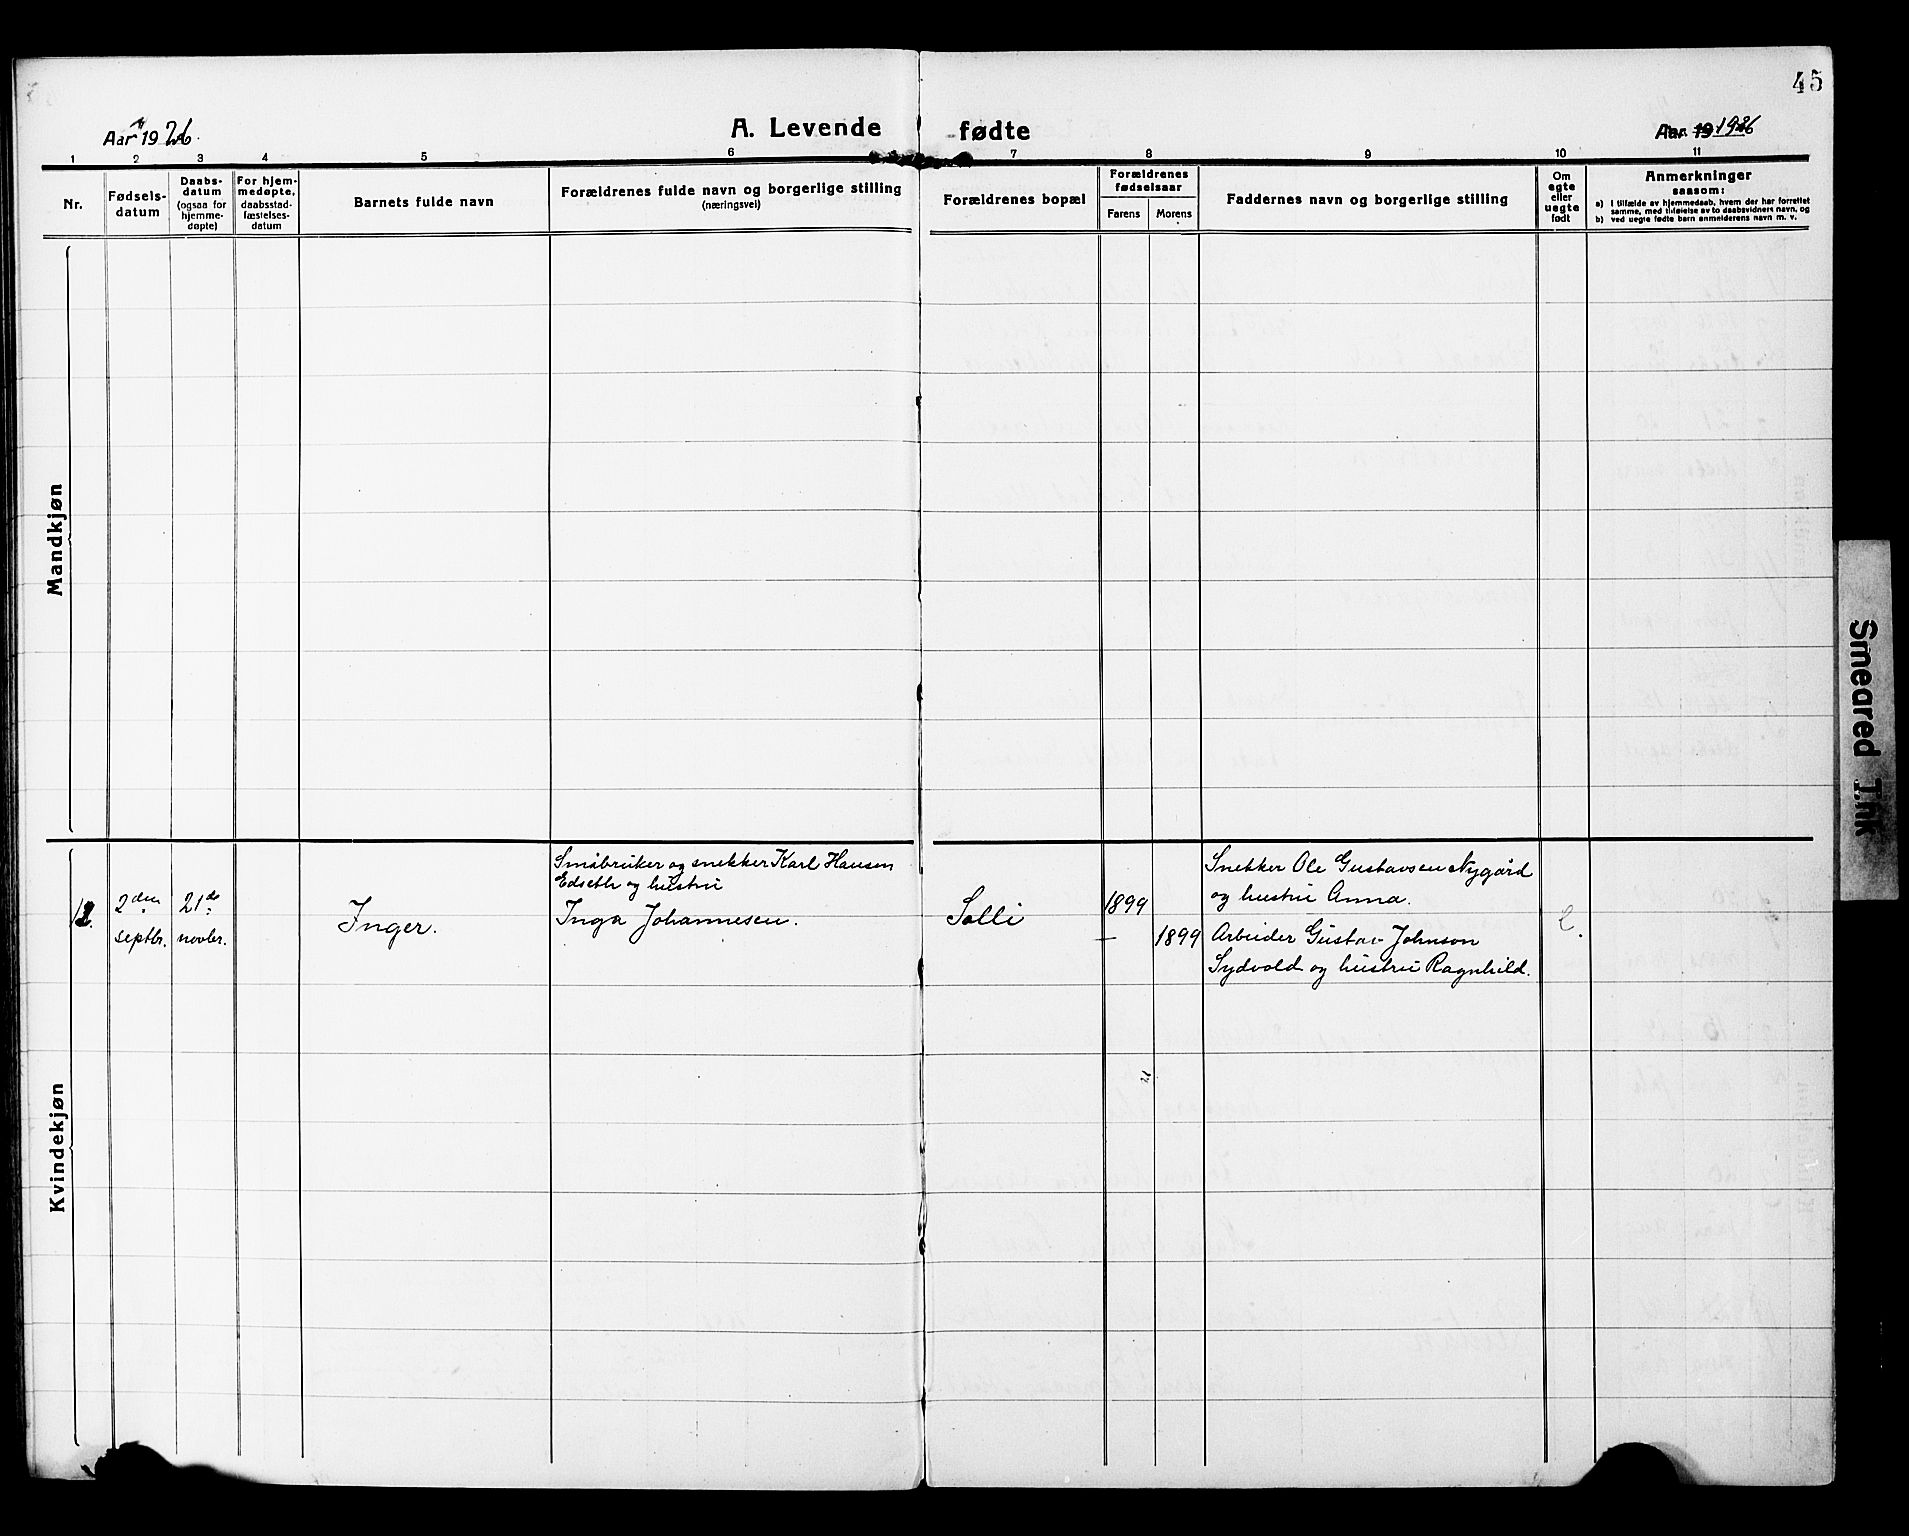 45
Aar 1926.
A. Levende fødte
Aar 19 1926
1 2 3 4 5 6 7 8 9 10 11
Nr.
Fødsels-
datum
Daabs-
datum
(ogsaa for
hjemme-
døpte)
For hjem-
medøpte,
daabsstad-
fæstelses-
datum
Barnets fulde navn
Forældrenes fulde navn og borgerlige stilling
(næringsvei)
Forældrenes bopæl
Forældrenes
fødselsaar
Farens Morens
Faddernes navn og borgerlige stilling
Om
egte
eller
uegte
født
Anmerkninger
saasom:
a) I tilfælde av hjemmedaab, hvem der har forrettet
samme, med tilføielse av to daabsvidners navn, og
b) ved uegte fødte børn anmelderens navn m. v.
Mandkjøn
Kvindekjøn
2den
septbr.
21de
novbr.
Inger.
Småbruker og snekker Karl Hansen
Edseth og hustru
Inga Johannesen.
Solli
1899
— 1899
Snekker Ole Gustavsen Nygård
og hustru Anna.
Arbeider Gustav Johnson
Sydvold og hustru Ragnhild.
e.
Smeared Ink